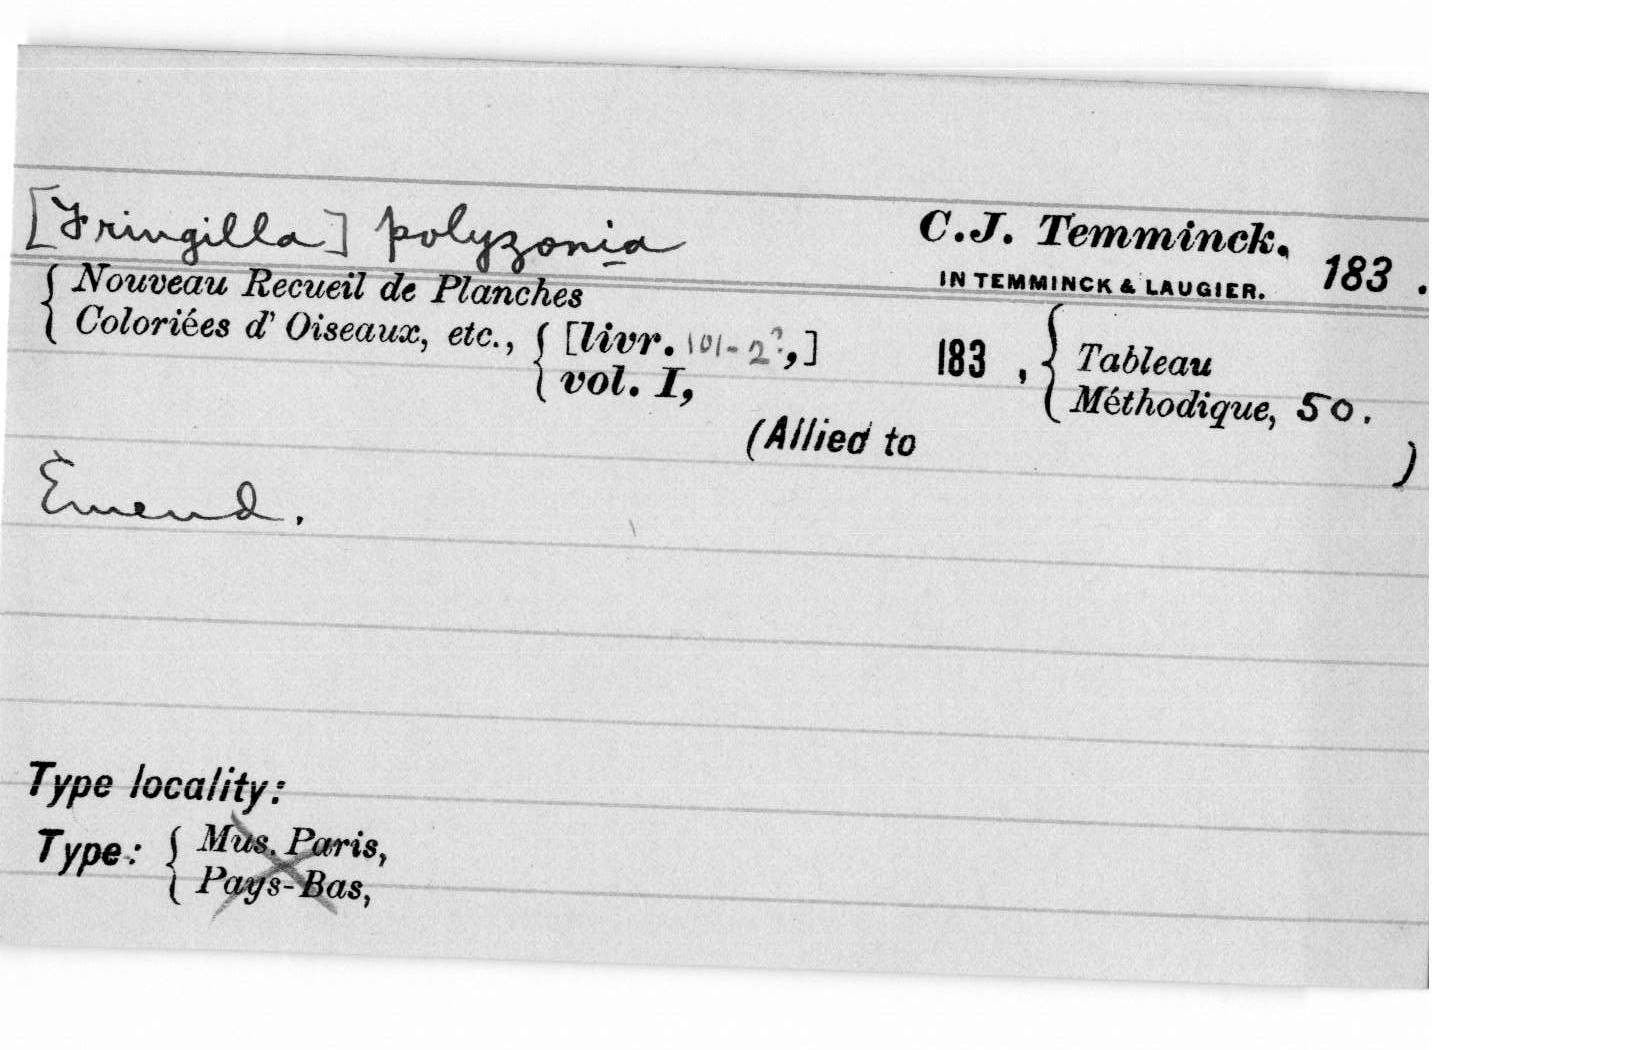 [Fringilla] polyzonia C.J. Temminck. 183 .
IN TEMMINCK & LAUGIER.
Nouveau Recueil de Planches
Coloriées d' Oiseaux, etc., [livr. 101-2?,] 183 , Tableau
vol. I, Méthodique, 50.
(Allied to )
Emend.
Type locality:
Type: Mus. Paris,
Pays-Bas,